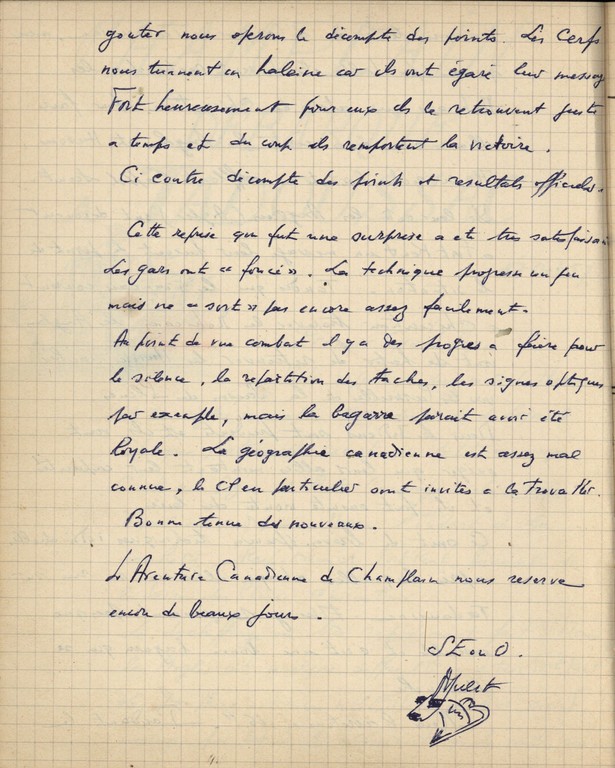 gouter nous operons le décompte des points. Les Cerfs
nous tiennent en haleine car ils ont égaré leur message
Fort heureusement pour eux ils le retrouvent juste
a temps et du coup ils remportent la victoire.
Ci contre décompte des points et resultats officiels.
Cette reprise qui fut une surprise a été très satisfaisante
Les gars ont « foncé ». La technique progresse un peu
mais ne « sort » pas encore assez facilement.
Au point de vue combat il y a des progres a faire pour
le silence, la répartition des taches, les signes optiques
par exemple, mais la bagarre parait avoir été
Royale. La géographie canadienne est assez mal
connue, les CP en particulier sont invités a la travailler.
Bonne tenue des nouveaux.
L'Aventure Canadienne de Champlain nous reserve
encore de beaux jours.